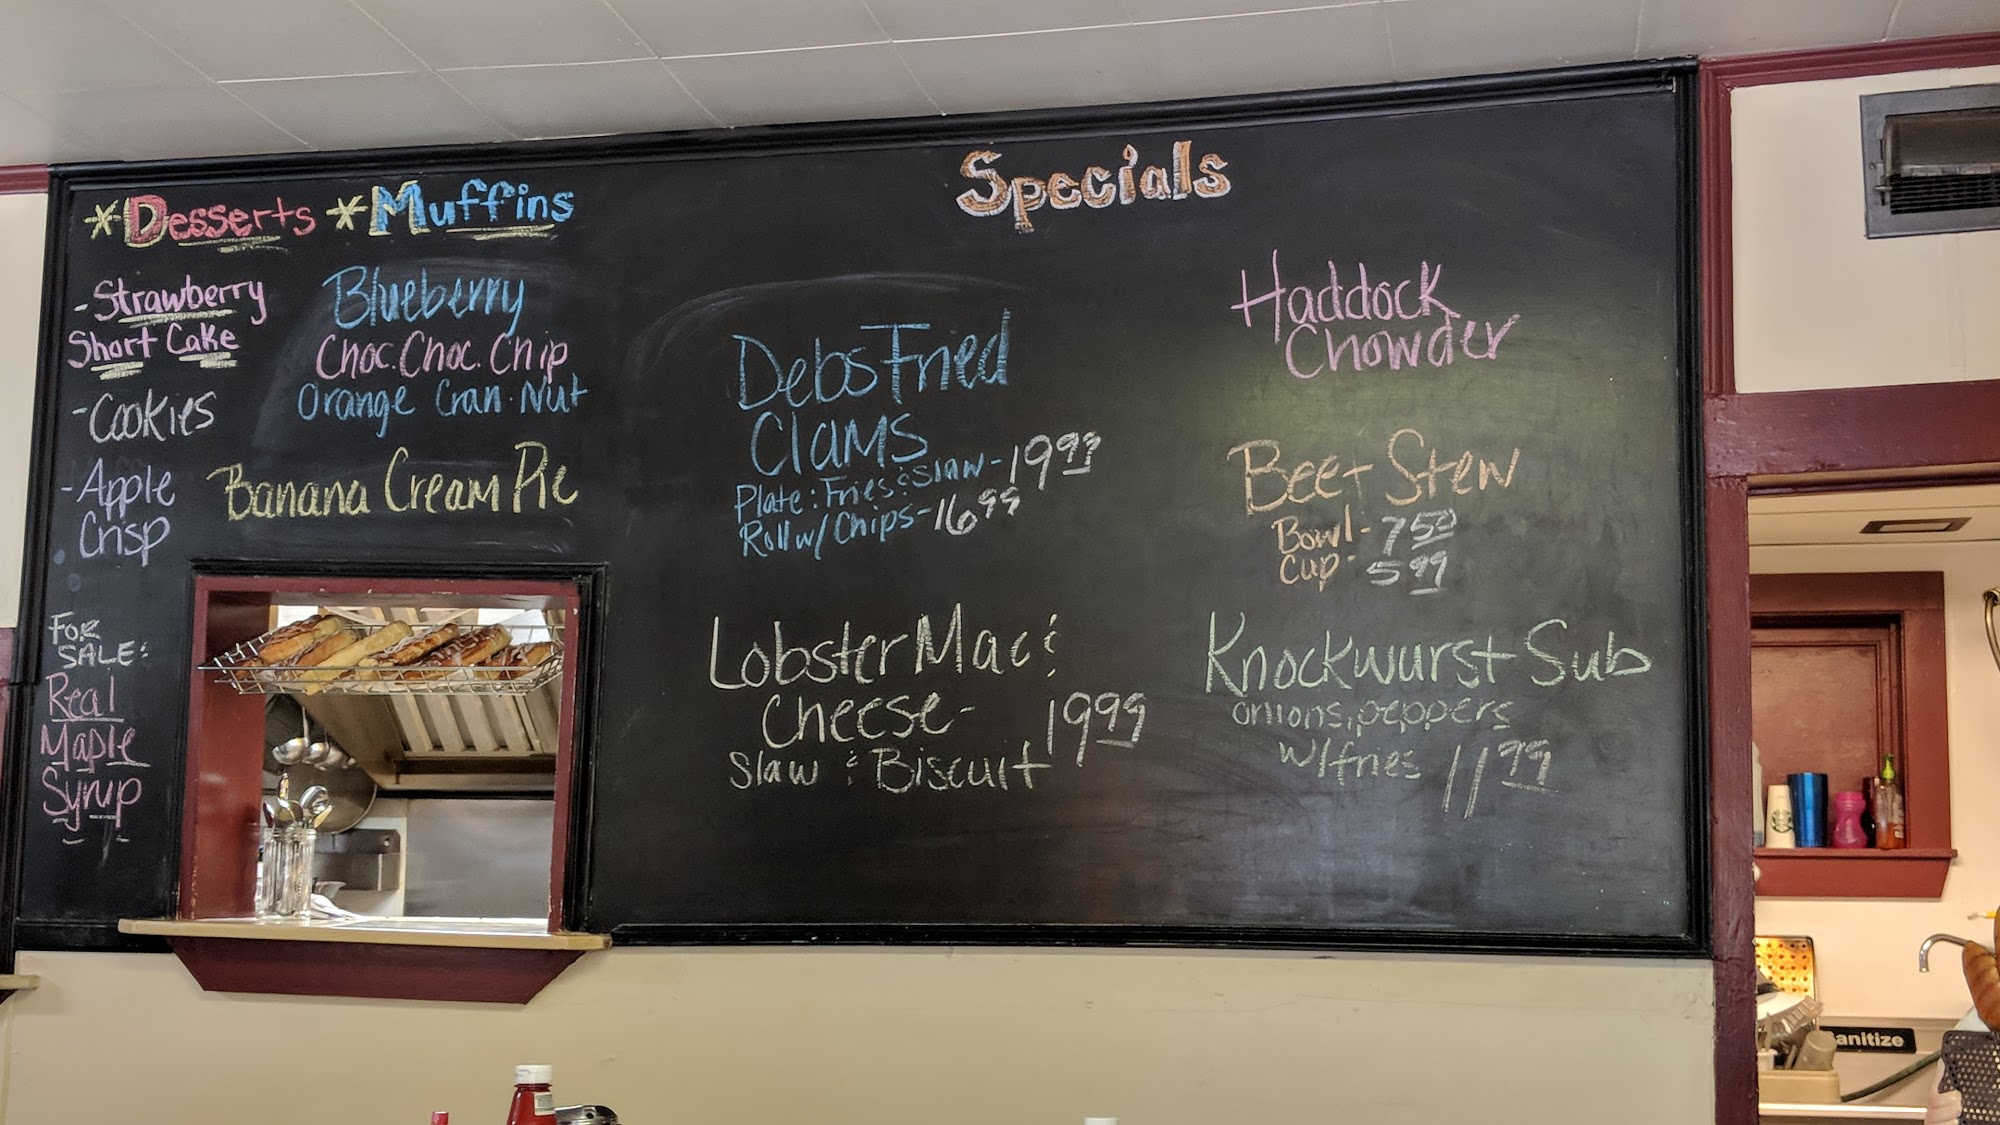 *Desserts
- Strawberry
Short Cake
- Cookies
- Apple
Crisp
FOR
SALE:
Real
Maple
Syrup
*Muffins
Blueberry
Choc. Choc. Chip
Orange Cran. Nut
Banana Cream Pie
Specials
Debs Fried
Clams
Plate: Fries & Slaw - 19.99
Roll w/ Chips - 16.99
Lobster Mac &
Cheese -
Slaw & Biscuit 19.99
Haddock
Chowder
Beef Stew
Bowl - 7.50
Cup - 5.99
Knockwurst Sub
onions, peppers
w/ fries 11.99
anitize